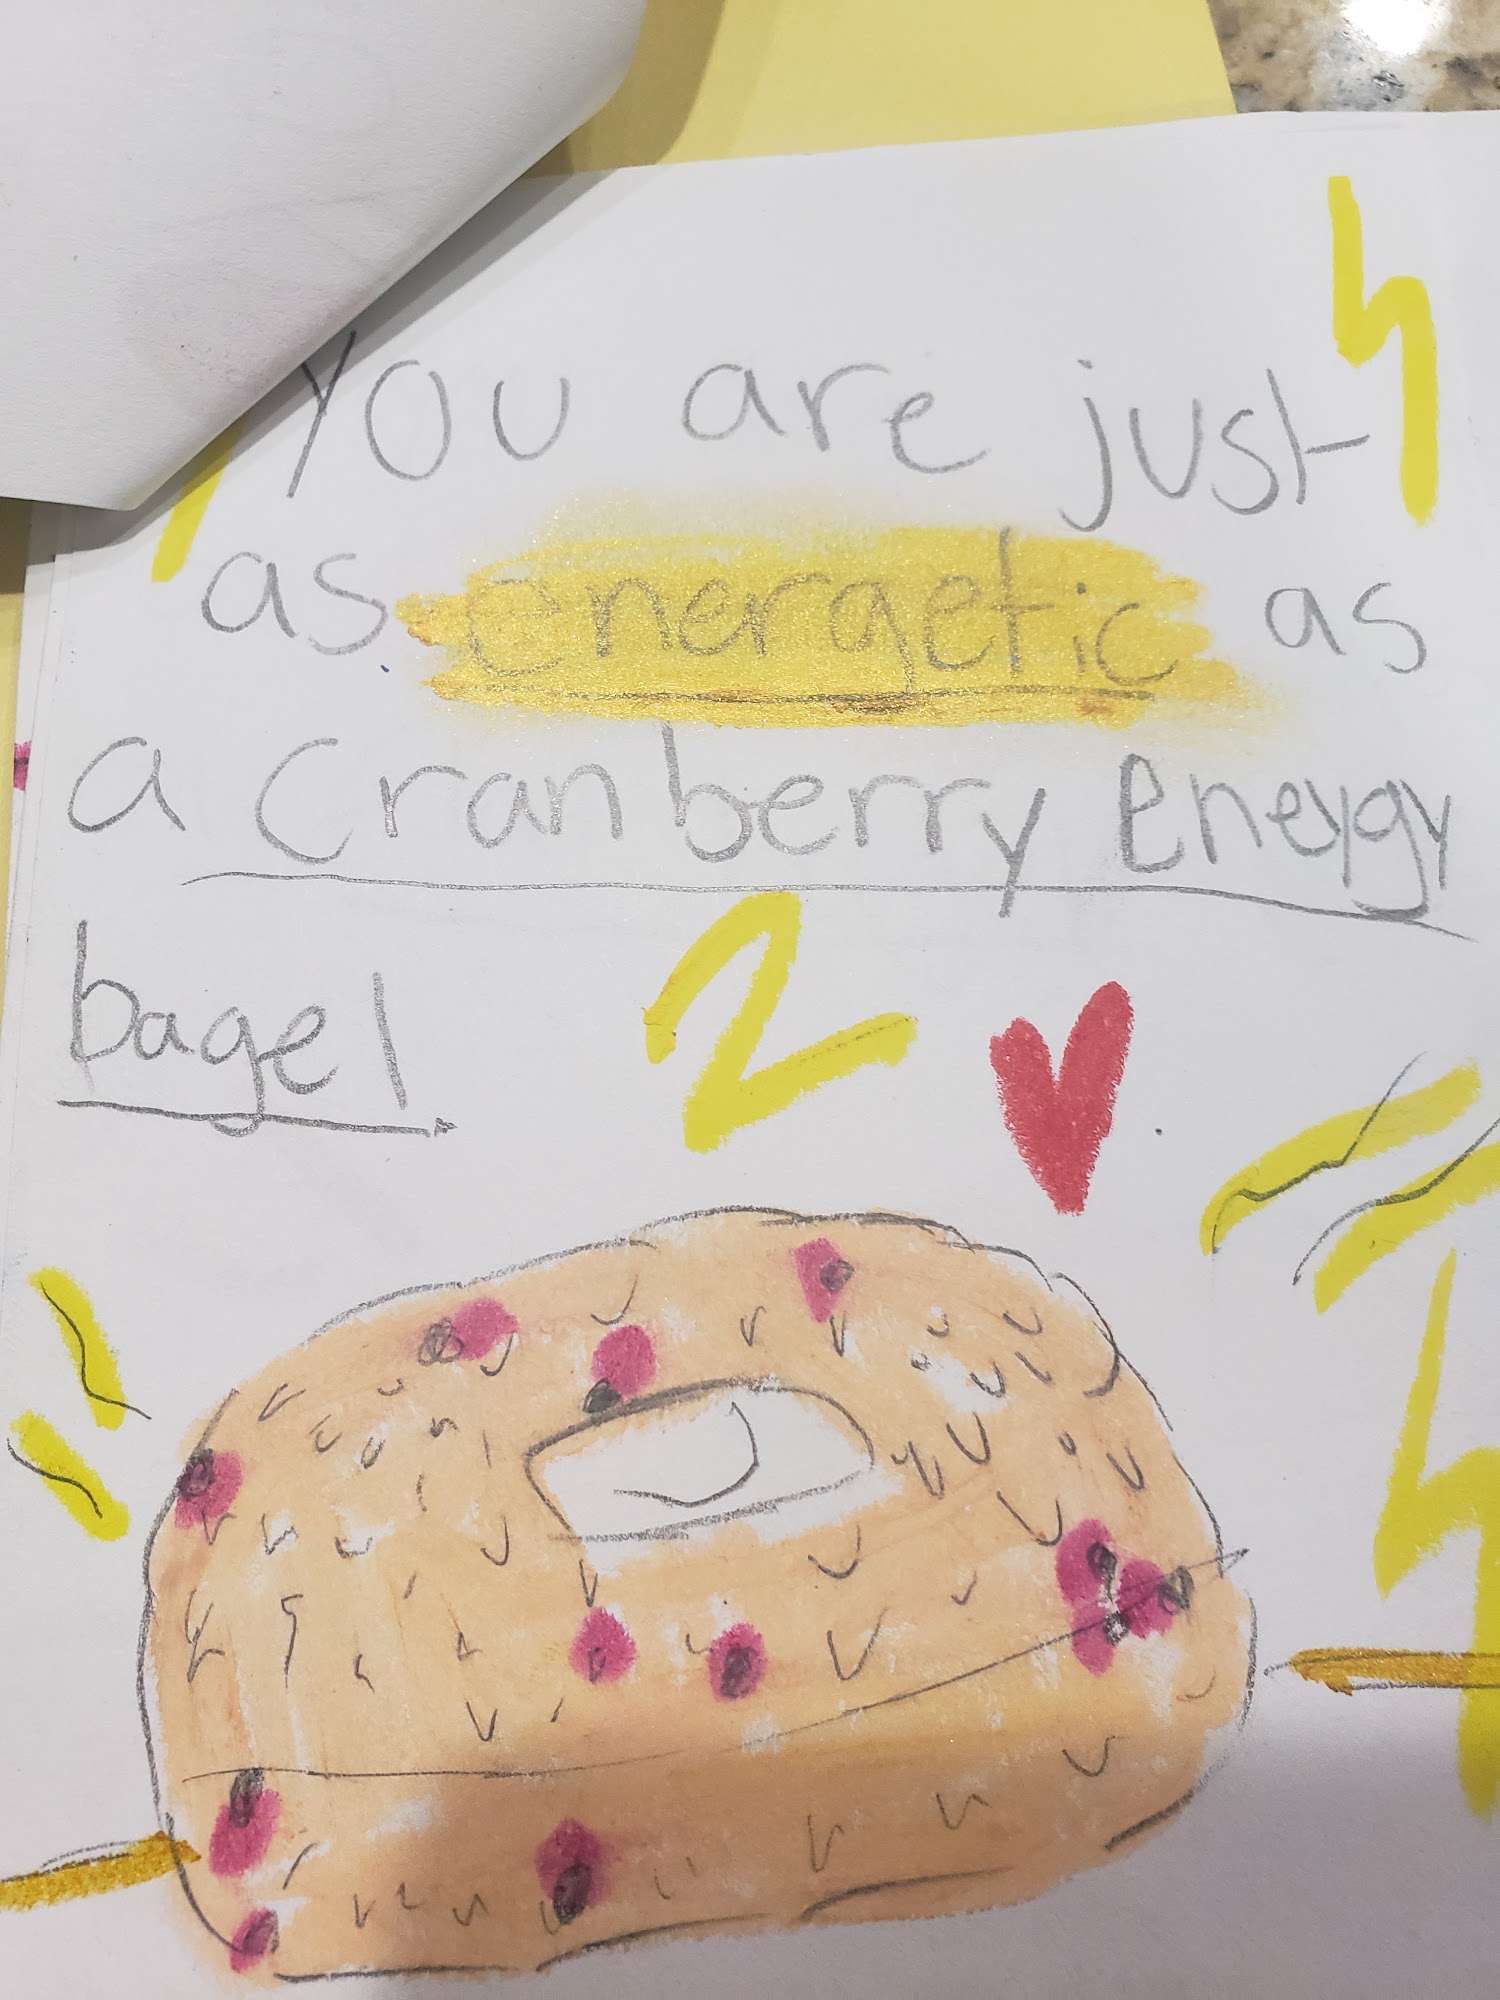 You are just
as energetic as
a cranberry energy
bagel.